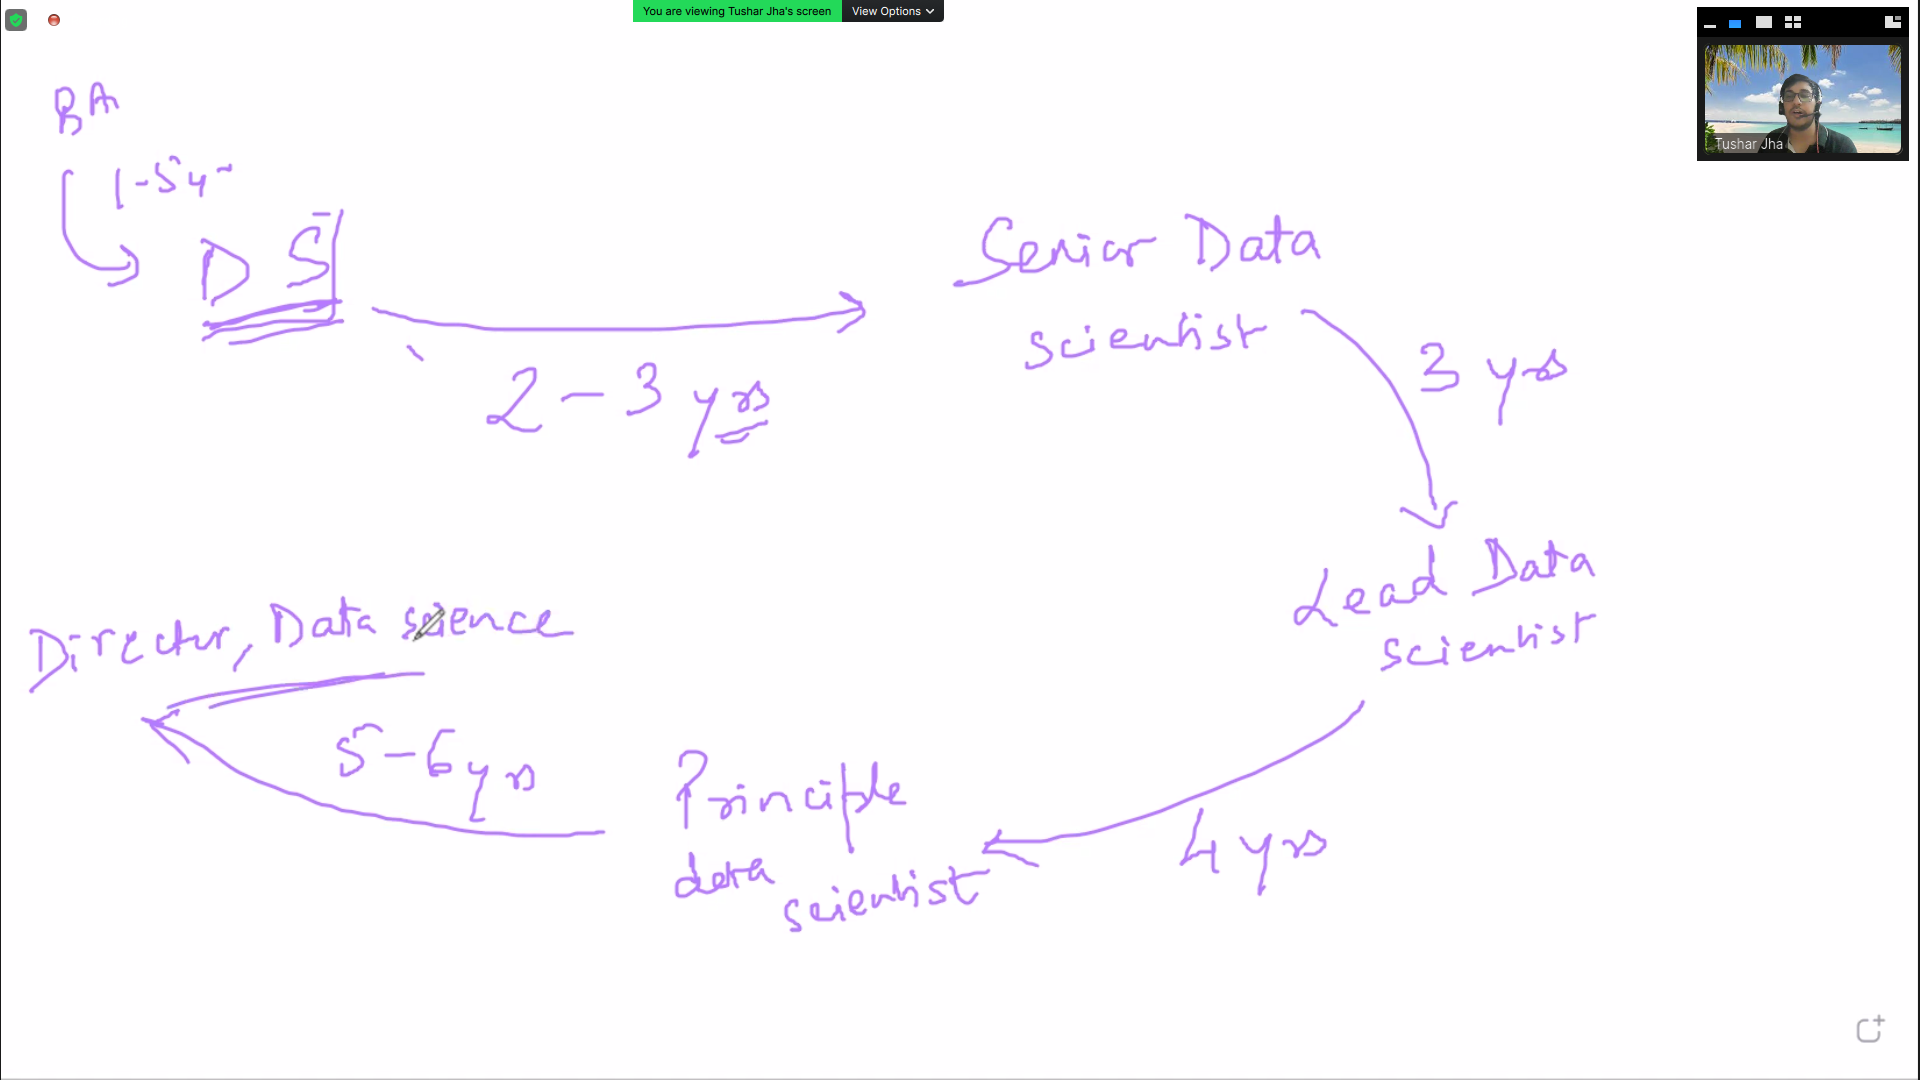 You are viewing Tushar Jha's screen View Options
Tushar Jha
BA
1-5 yr
DS
2 - 3 yrs
Senior Data
scientist
3 yrs
Lead Data
scientist
4 yrs
Principle
data
scientist
5-6 yrs
Director, Data science